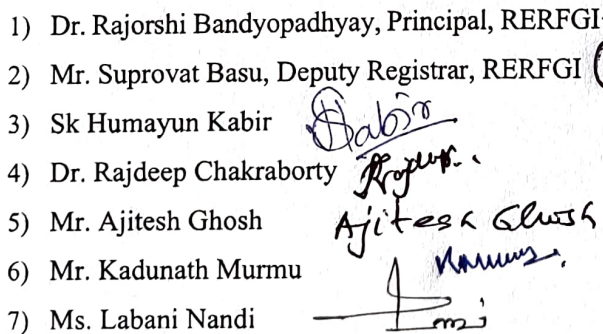 1) Dr. Rajorshi Bandyopadhyay, Principal, RERFGI
2) Mr. Suprovat Basu, Deputy Registrar, RERFGI
3) Sk Humayun Kabir
4) Dr. Rajdeep Chakraborty
5) Mr. Ajitesh Ghosh Ajitesh Ghosh
6) Mr. Kadunath Murmu
7) Ms. Labani Nandi